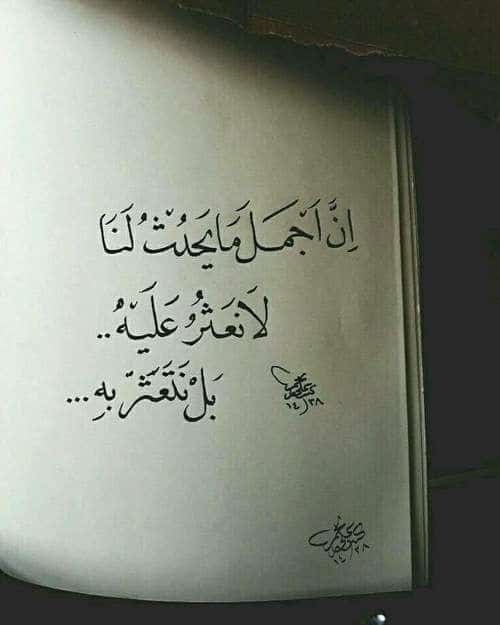 إِنَّ أَجْمَلَ مَا يَحْدُثُ لَنَا
لَا نَعْثُرُ عَلَيْهُ ..
بَلْ نَتَعَثَّر بِهِ ...
١٤/٣٨
١٤/٣٨